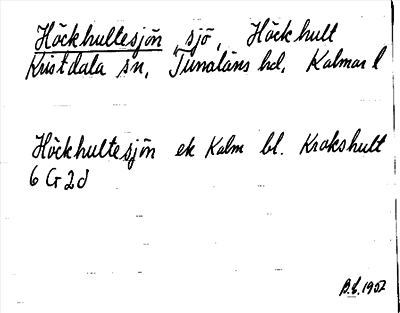 Höckhultesjön sjö, Höckhult
Kristdala sn, Tunaläns hd, Kalmar l
Höckhultesjön ek Kalm bl. Krokshult
6 G 2d
B.E. 1952